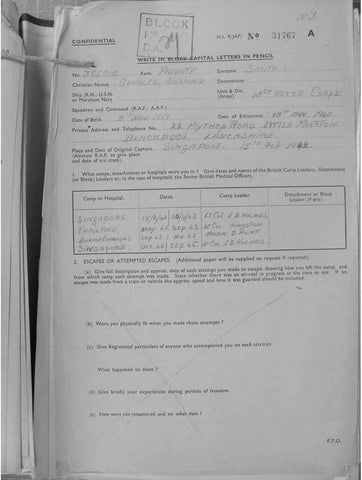 CONFIDENTIAL
BLOCK
M.I. 9/JAP/ No 31767 A
WRITE IN BLOCK CAPITAL LETTERS IN PENCIL
No. Rank PRIVATE Surname SMITH
Christian Names CHARLES NORMAN Decorations
Ship (R.N., U.S.N. or Merchant Navy) Unit & Div. (Army) 18TH RECCE CORPS.
Squadron and Command (R.A.F., A.A.F.)
Date of Birth 8TH NOV. 1917 Date of Enlistment 18TH JAN 1940
Private Address and Telephone No. 22 MYTHOP ROAD. LITTLE MARTON.
BLACKPOOL LANCASHIRE.
Place and Date of Original Capture SINGAPORE. 15TH FEB 1942
(Aircrew R.A.F. to give place
and date of a/c crash).
1. What camps, detachments or hospitals were you in? Give dates and names of the British Camp Leaders, Detachment
(or Block) Leaders or, in the case of hospitals, the Senior British Medical Officers.
Camp or Hospital. Dates. Camp Leader. Detachment or Block
Leader (if any).
SINGAPORE LT COL E B HOLMES
THAILAND MAY. 43 SEP. 43 LT COL
SEP. 43 NOV. 43 MAJOR
SINGAPORE DEC 43 SEP. 45 LT COL E B HOLMES.
2. ESCAPES OR ATTEMPTED ESCAPES. (Additional paper will be supplied on request if required).
(a) Give full description and approx. date of each attempt you made to escape, showing how you left the camp, and
from which camp each attempt was made. State whether there was an air-raid in progress at the time or not. If an
escape was made from a train or vehicle the approx. speed and how it was guarded should be included.
(b) Were you physically fit when you made these attempts?
(c) Give Regimental particulars of anyone who accompanied you on each attempt.
What happened to them?
(d) Give briefly your experiences during periods of freedom.
(e) How were you recaptured and on what date?
P.T.O.